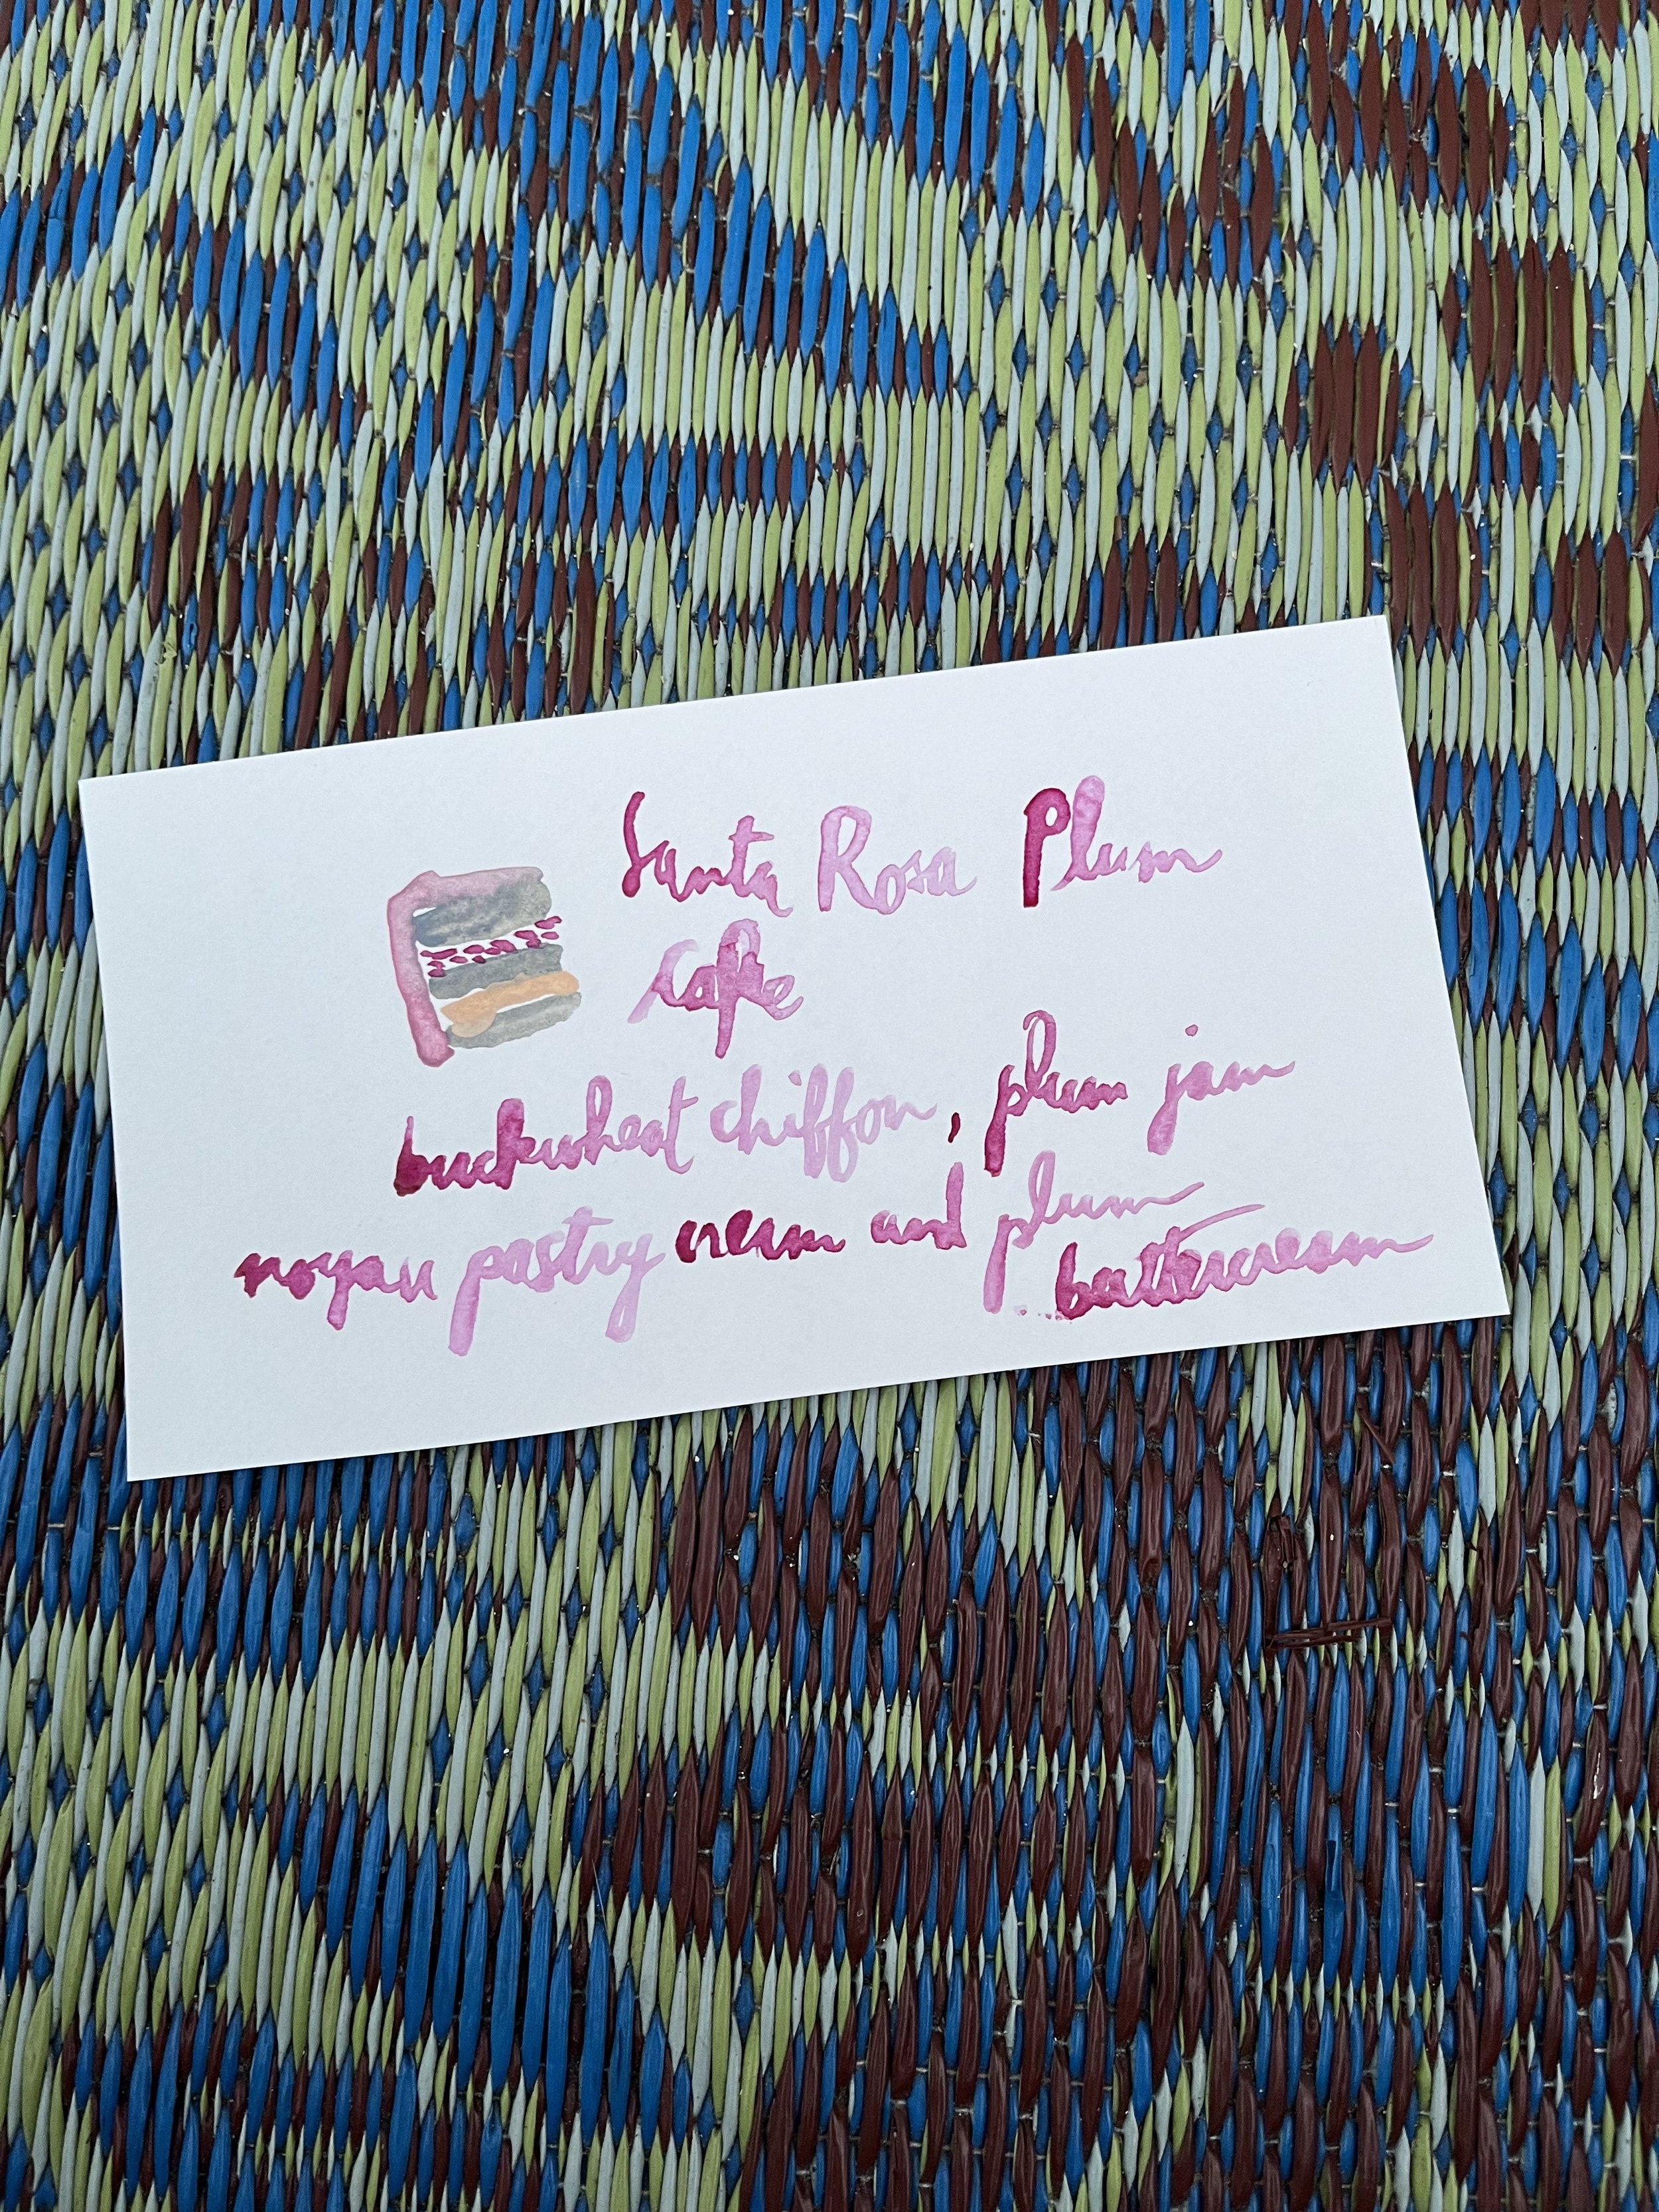 Santa Rosa Plum
Cake
buckwheat chiffon, plum jam
noyau pastry cream and plum
buttercream